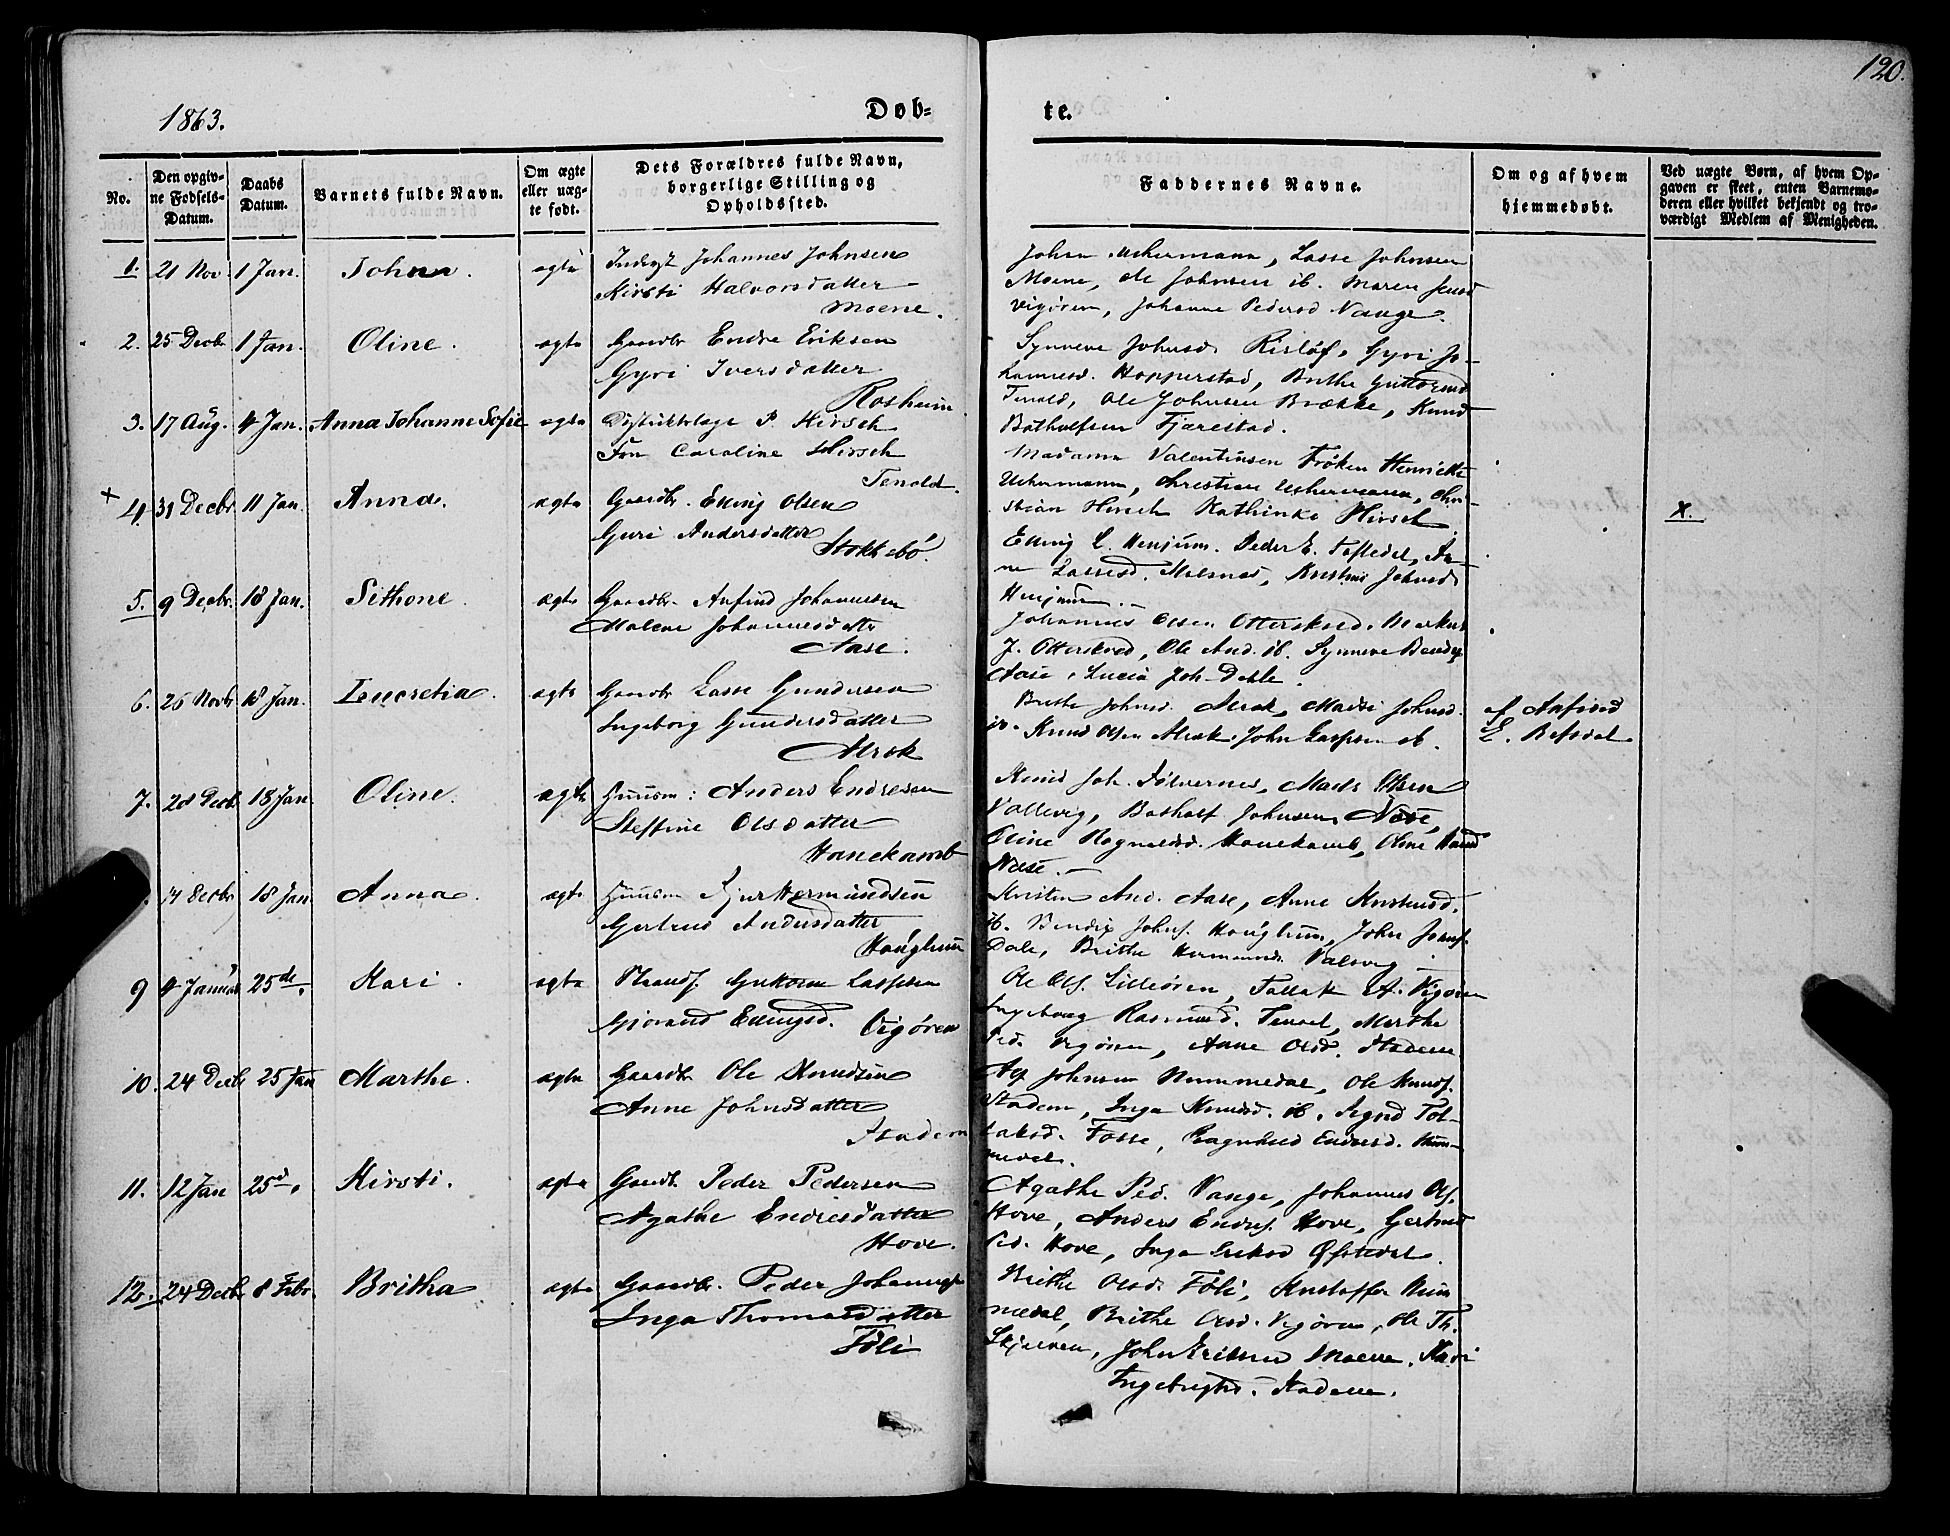 120.
1863.
Døb-
te.
No.
Den opgiv-
ne Fødsels-
Datum.
Daabs
Datum.
Barnets fulde Navn.
Om ægte
eller uæg-
te født.
Dets Forældres fulde Navn,
borgerlige Stilling og
Opholdssted.
Faddernes Navne.
Om og af hvem
hjemmedøbt.
Ved uægte Børn, af hvem Op-
gaven er skeet, enten Barnemo-
deren eller hvilket bekjendt og tro-
værdigt Medlem af Menigheden.
1. 21 Nov. 1 Jan. Johna. ægte Inderst Johannes Johnsen
Kirsti Halvorsdatter
Moene.
John Uchermann, Lasse Johnsen
Moene, Ole Johnsen ib. Maren
Vigören, Johanne Pedersd Vange.
2. 25 Decbr 1 Jan. Oline. ægte Gaardbr Endre Eriksen
Gyri Iversdatter
Rosheim
Synneve Johnsd. Risløf, Gyri Jo-
hannesd. Hopperstad, Brithe Guttormsd
Tenold, Ole Johnsen Brække, Knud
Botholfsen Fjærestad.
3. 17 Aug. 4 Jan. Anna Johanne Sofie ægte Distriktslæge P. Hirsch
Fru Caroline Hirsch
Tenold.
Madame Valentinsen Frøken Henriette
Uchermann, Christian Uchermann, Chri-
stian Hirsch Kathinke Hirsch
+ 4. 31 Decbr. 11 Jan. Anna. ægte Gaardbr. Elling Olsen
Guri Andersdatter
Stokkebö.
x.
Elling L. Henjum. Peder E. Toftedal, An-
ne Lassesd. Molsnæs, Kristine Johnsd
Henjum.
5. 9 Decbr. 18 Jan. Sithone. ægte Gaardbr. Anfind Johannesen
Malene Johannesdatter
Aase.
Johannes Olsen Otterskred. Markus
J. Otterskred, Ole And. ib. Synneve Bendix
Aase, Lucia Joh. Dahle.
6. 26 Novbr 18 Jan. Lucretia. ægte Gaardbr Lasse Gundersen
Ingeborg Gundersdatter
Brithe Johnsd. Madsi Johnsd.
ib. Knud Olsen John Lassesen ib.
af Anfind
E. Refsdal
7. 28 Decb. 18 Jan. Oline. ægte Huusm: Anders Endresen
Steffine Olsdatter
Hanekamb
Knud Joh. Mads Olsen
Vallevig, Botholf Johnsen Næse,
Oline Ragnvaldsd. Hanekamb, Oline
Næse.
14 Decbr 18 Jan Anna. ægte Huusm Sjur Hermundsen
Gertrud Andersdatter
Houglum
Kristen And. Aase, Anne Kristensd.
ib. Bendix Johns. Houglum, John
Dale, Brithe Valsvig
9 4 Januar 25de. Kari. ægte Strands. Guttorm Lassesen
Gjörond Ellingsd. Vigören
Ole Ols. Lilleören, Tollak A. Vigören
Ingeborg Rasmusd. Tenol, Marthe
Ped. Vigören, Anne Olsd. Stadem
10. 24 Decbr 25 Jan Marthe. ægte Gaardbr Ole Knudsen
Anne Johnsdatter
Stadem
Johnsen Nummedal, Ole Knuds.
Stadem, Inga Knudsd. ib. Sigrid Tol-
laksd. Fosse, Ragnhild Endresd. Num-
medal.
11. 12 Jan 25d. Kirsti. ægte Gaardb. Peder Pedersen
Agathe Endresdatter
Hove.
Agathe Ped. Vange, Johannes Ols.
Hove, Anders Endres. Hove, Gertrud
Ped. Hove, Inga Öfstedal
12. 24 Decbr 8 Febr. Britha ægte Gaardbr. Peder Johannes
Inga Thomasdatter
Föli
Brithe Olsd. Föli, Kristoffer Num
medal, Brithe Olsd. Vigören, Ole Th.
John Eriksen Moene, Kari
Ingebrigtsd. Stadem.